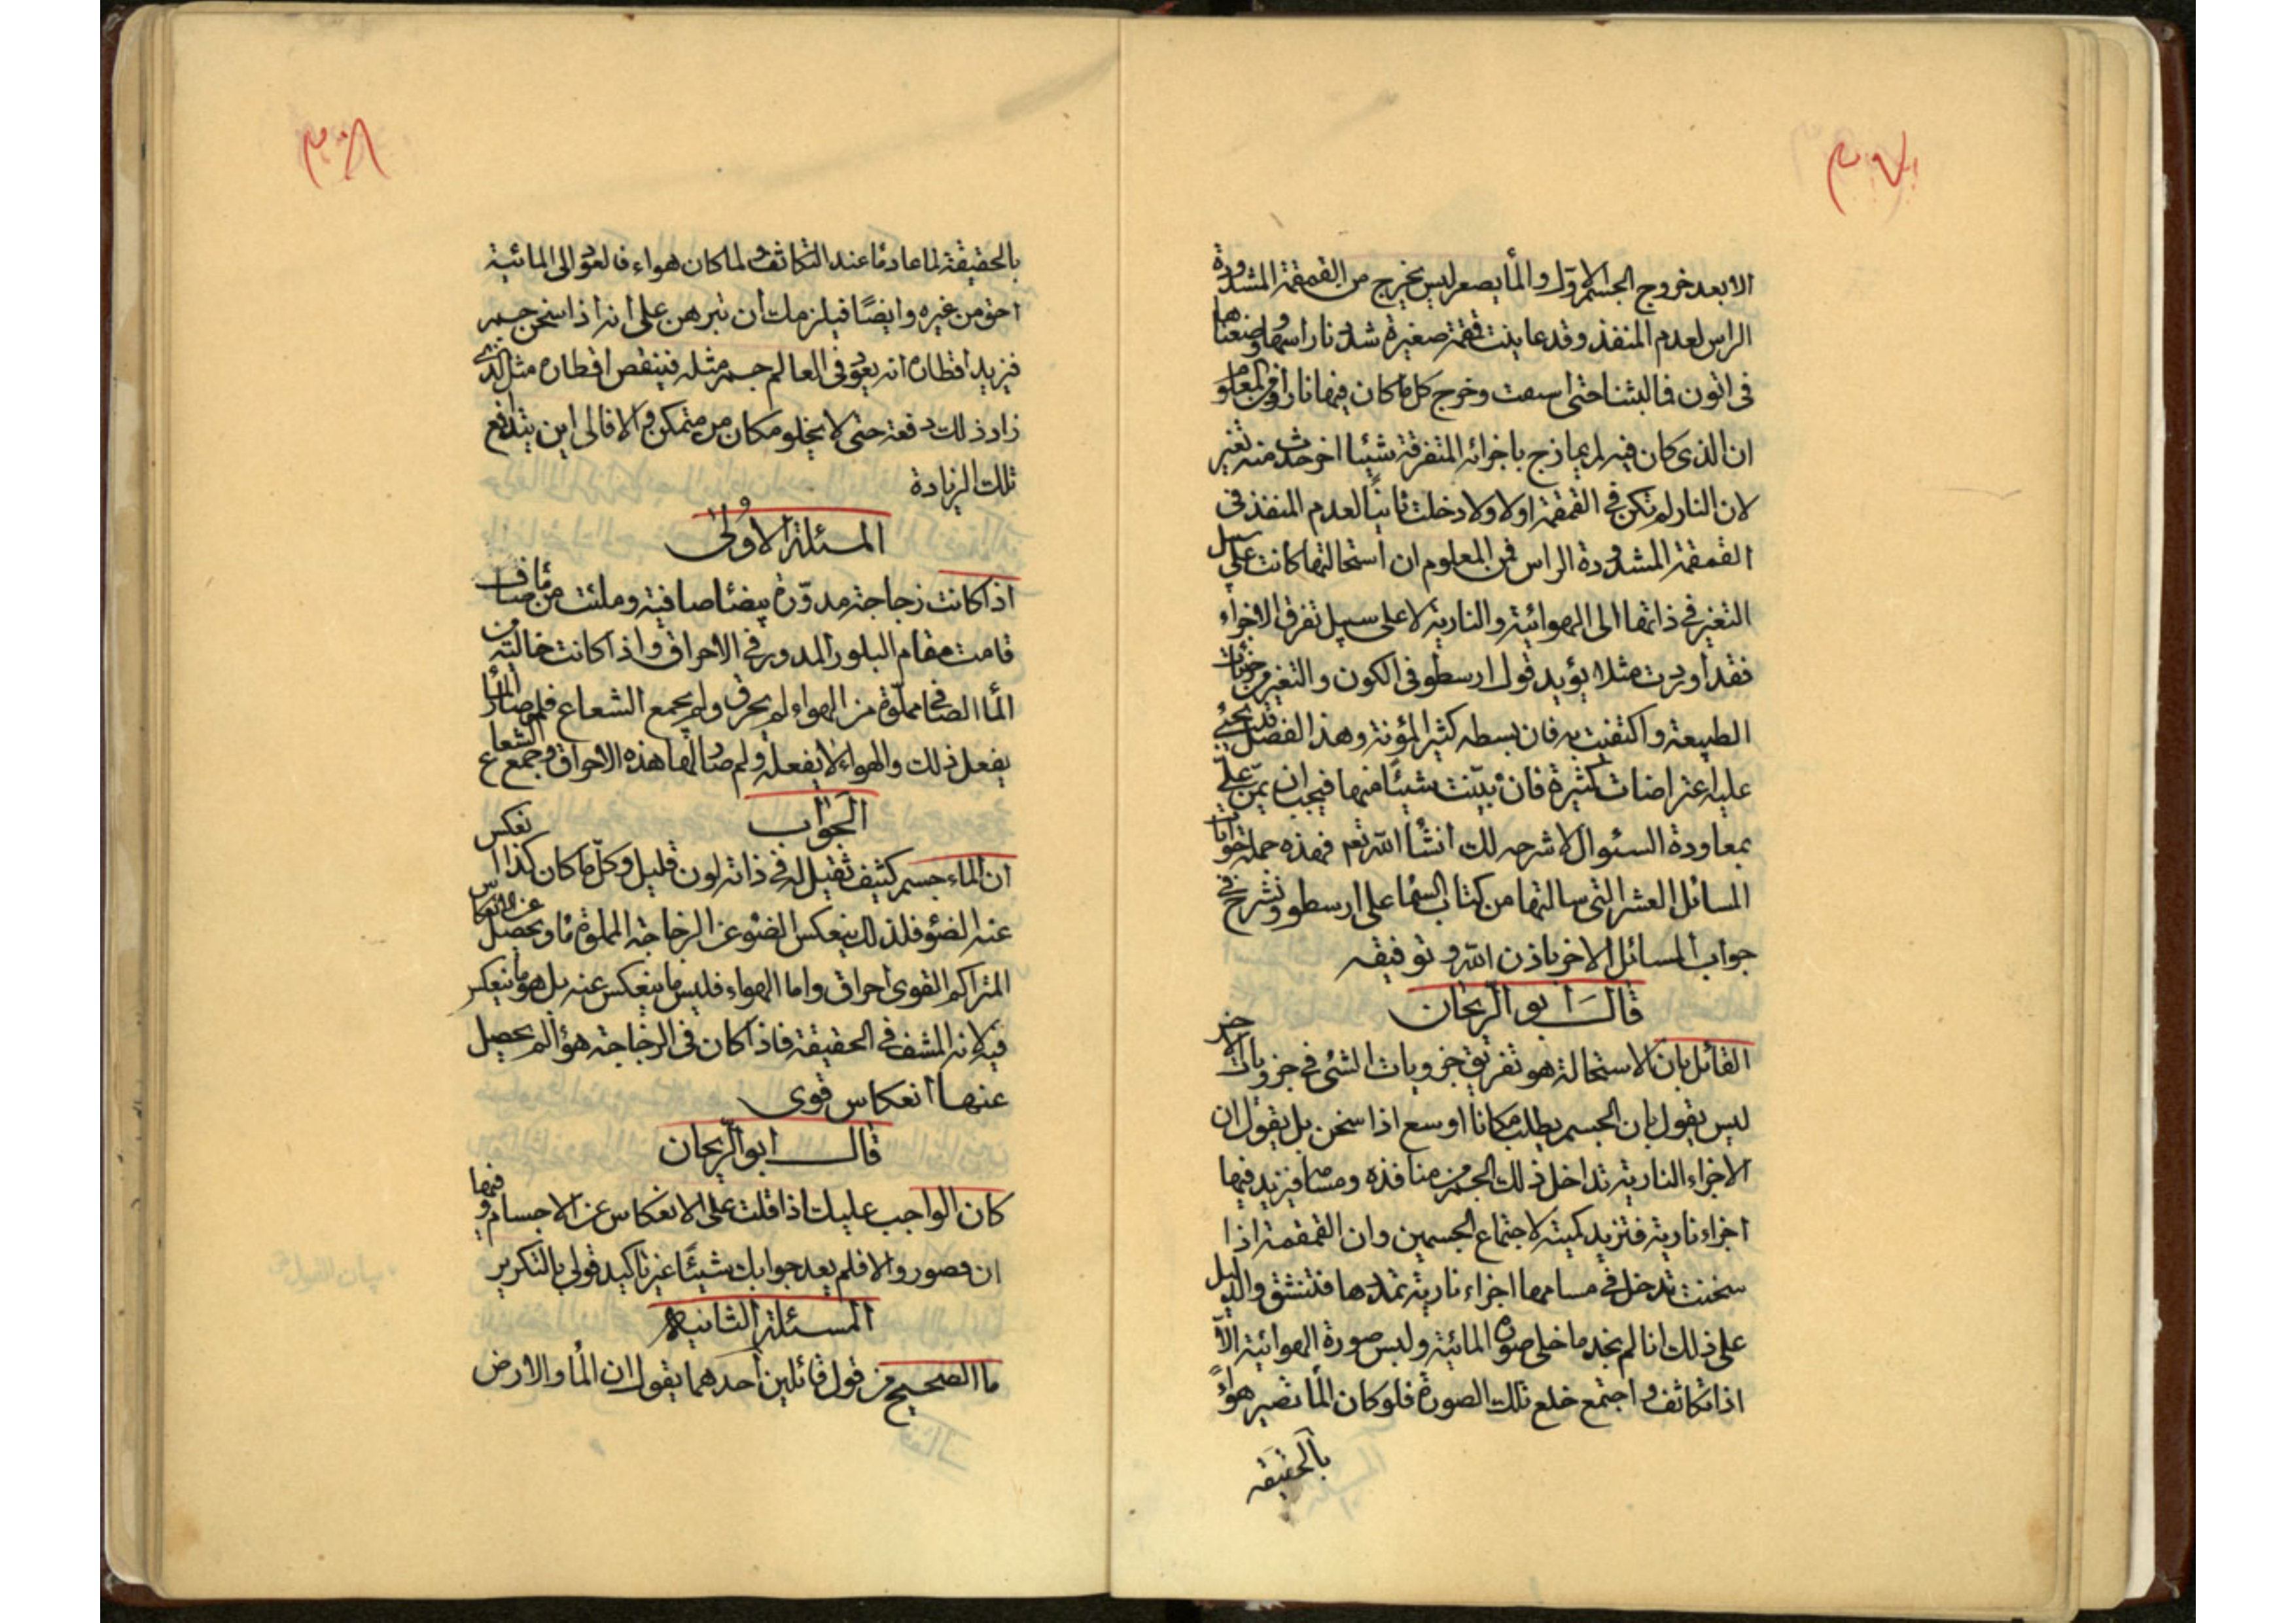 الا بعد خروج الجسم الاوّل والمأ يصعر ليس يخرج من القمقمة المشدودة
الراس لعدم المنفذ وقد عاينت قمقمة صغيرة شددنا راسها ووضعناها
فى اتون فما لبثنا حتى انسقت وخرج كل ما كان فيها نارا ومن المعلوم
ان الذى كان فيه لم يمازج باجزائه المتفرقة شيئا اخر حدث منه تغير
لان النار لم تكن فى القمقمة اولا ولا دخلت ثانياً لعدم المنفذ فى
القمقمة المشدودة الراس فمن المعلوم ان استحالتها كانت على سبيل
التغير فى ذاتها الى الهوائية والنارية لا على سبيل تفرق الاجزاء
فقد اوردت مثلا يؤيد قول ارسطو فى الكون والتغير من جزئيات
الطبيعة واكتفيت به فان بسطه كثير المؤنة وهذا الفصل قد يجئ
عليه اعتراضات كثيرة فان بيّنت شيئاً منها فيجب ان يمنّ علىّ
بمعاودة السئوال لاشرحه لك انشأ اللّه تعم فهذه جملة جوابات
المسائل العشر التى سالتها من كتاب السمأ على ارسطو ونشرع فى
جواب المسائل الاخر باذن اللّه وتوفيقه
قال ابو الرّيحان
القائل بان الاستحالة هو تفريق جزويات الشئ فى جزويات الاخر
ليس يقول بان الجسم يطلب مكاناً اوسع اذا سخن بل يقول ان
الاجزاء النارية تداخل ذلك الجسم من منافذه ومسامه فيزيد فيها
اجزاء نارية فتزيد كميته لاجتماع الجسمين وان القمقمة اذا
سخنت تدخل فى مسامها اجزاء نارية تمددها فتنشق والدليل
على ذلك انا لم نجد ما خلى صورة المائية ولبس صورة الهوائية الاّ
اذا تكاثف واجتمع خلع تلك الصورة فلو كان المأ تصير هواءً
بالحقيقه
بالحقيقة لما عاد مأ عند التكاثف ولما كان هواء فالعود الى المائية
احق من غيره وايضًا فيلزمك ان تبرهن على انه اذا سخن جسم
فزيد اقطاره انه يعود فى العالم جسم مثله فينقص اقطاره مثل الذى
زاد ذلك دفعة حتى لا يخلو مكان من متمكن والا فالى اين يتدافع
تلك الزيادة
المسئلة الاولى
اذا كانت زجاجة مدوّرة بيضأ صافية وملئت من مأ صاف
قامت مقام البلور المدور فى الاحراق واذا كانت خالية من
المأ الصافى مملوّة من الهواء لم يحرق ولم يجمع الشعاع فلم صار المأ
يفعل ذلك والهواء لا يفعله ولم صار لها هذه الاحراق وجمع الشعاع
الجواب
ان الماء جسم كثيف ثقيل له فى ذاته لون قليل وكلّ ما كان كذا انعكس
عنه الضئو فلذلك ينعكس الضوء عن الزجاجة المملوة مأ ويحصل عن الانعكاس
المتراكم القوى احراق واما الهواء فليس ما ينعكس عنه بل هو ما ينعكر
فيه لانه المشف فى الحقيقة فاذا كان فى الزجاجة هوأ لم يحصل
عنها انعكاس قوى
قال ابو الرّيحان
كان الواجب عليك اذا قلت على الانعكاس عن الاجسام وفيها
ان فصور والا فلم يعد جوابك شيئًا غير تاكيد قولى بالتكرير
المسئلة الثانية
ما الصحيح من قول قائلين احدهما يقول ان المأ والارض